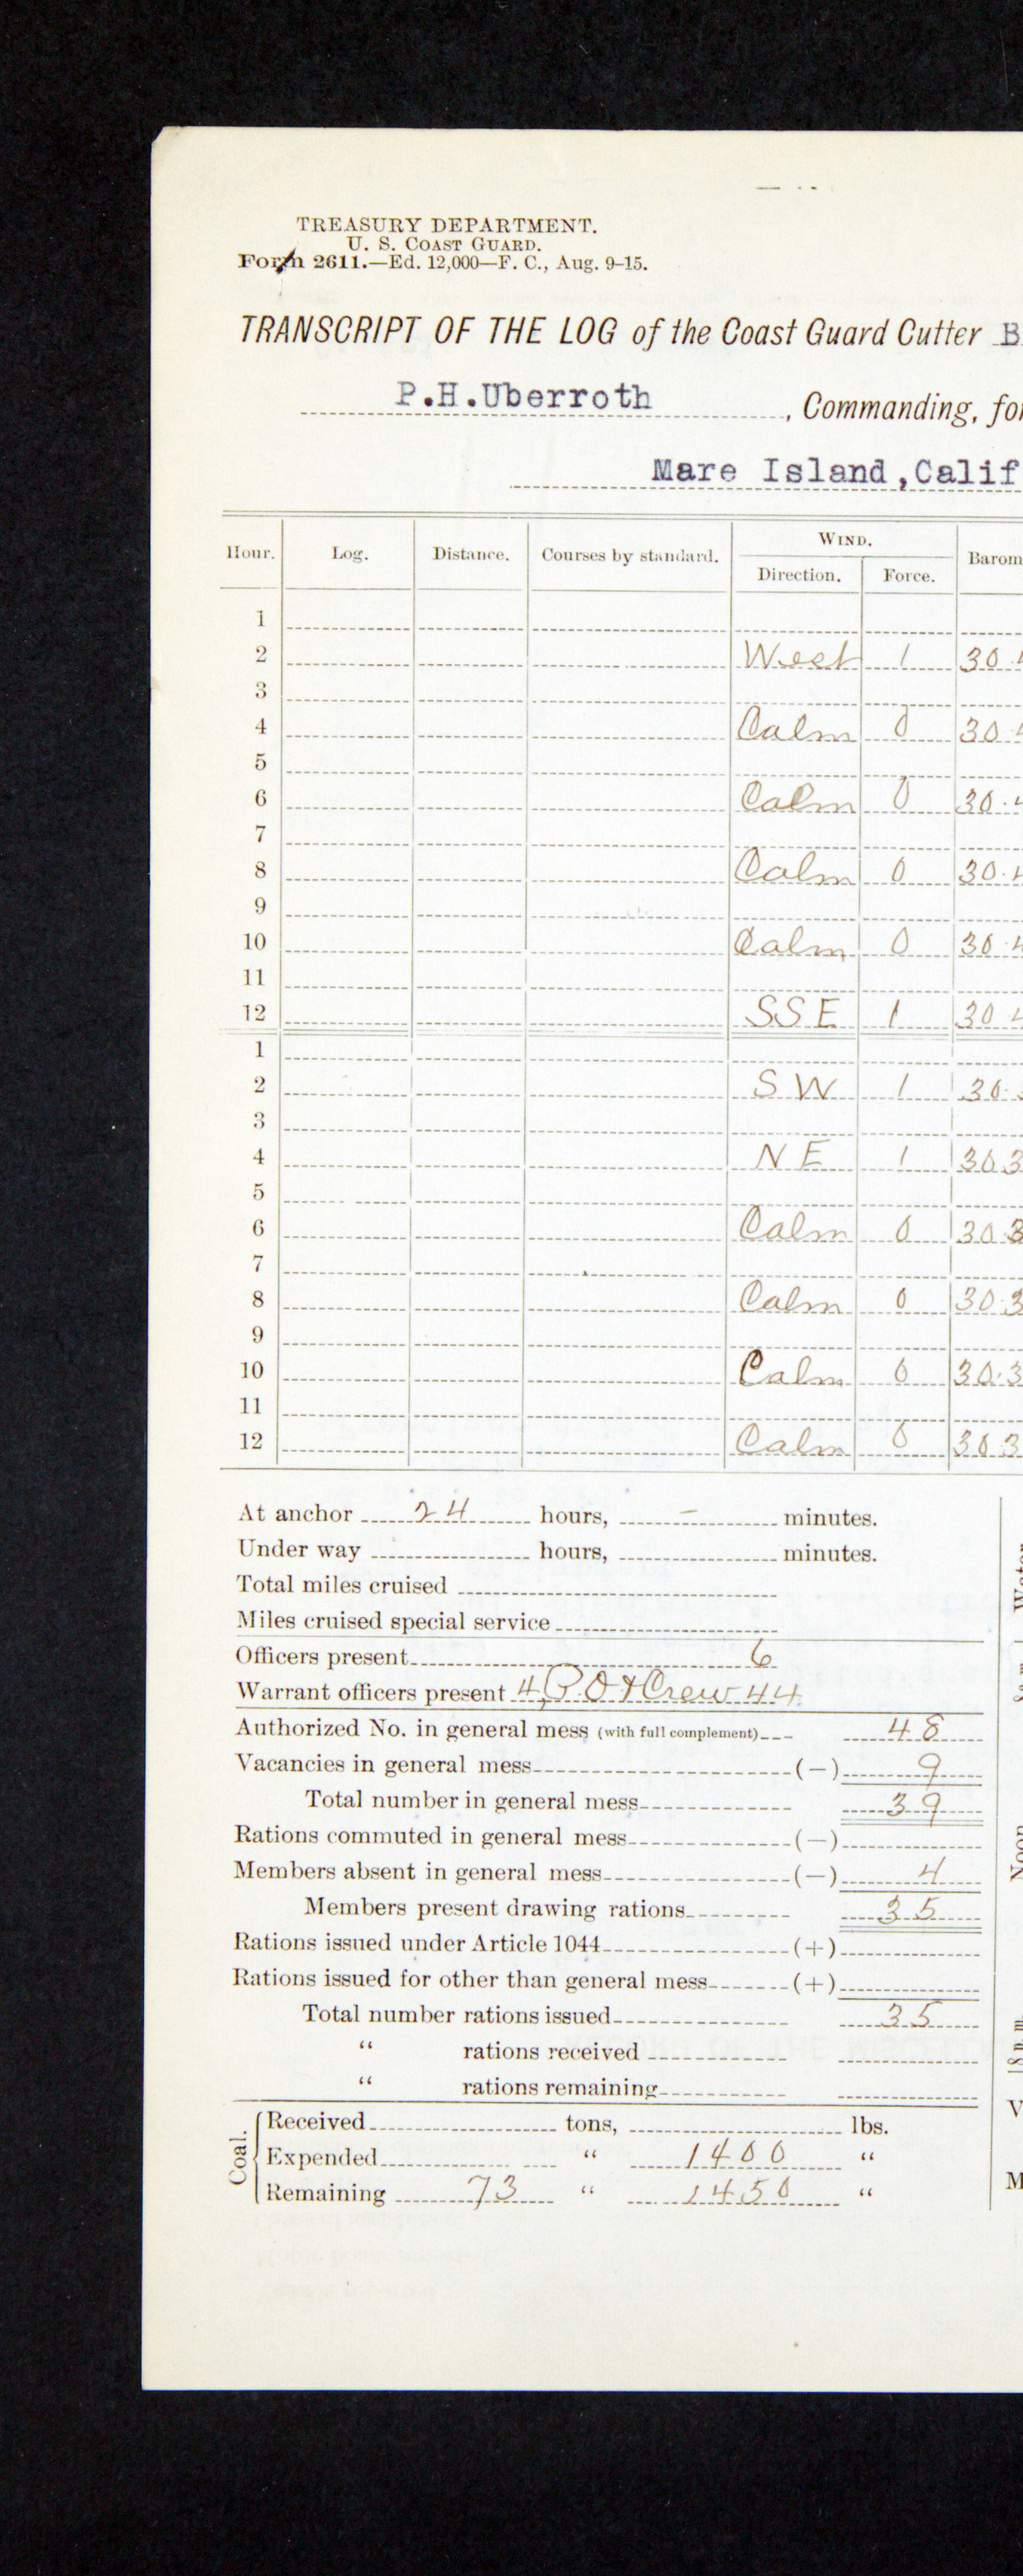 TREASURY DEPARTMENT.
U. S. COAST GUARD.
Form 2611.—Ed. 12,000—F. C., Aug. 9-15.
TRANSCRIPT OF THE LOG of the Coast Guard Cutter B
P.H.Uberroth, Commanding, for
Mare Island,Calif
Hour. Log. Distance. Courses by standard. WIND. Barom
Direction. Force.
1
2 West 1 30.4
3
4 Calm 0 30.4
5
6 Calm 0 30.4
7
8 Calm 0 30.4
9
10 Calm 0 30.4
11
12 SSE 1 30 4
1
2 SW 1 30.3
3
4 NE 1 30 3
5
6 Calm 0 30 3
7
8 Calm 0 30.3
9
10 Calm 0 30.3
11
12 Calm 0 30 3
At anchor 24 hours, – minutes.
Under way hours, minutes.
Total miles cruised
Miles cruised special service
Officers present 6
Warrant officers present 4, P.O & Crew 44
Authorized No. in general mess (with full complement) 48
Vacancies in general mess (—) 9
Total number in general mess 39
Rations commuted in general mess (—)
Members absent in general mess (—) 4
Members present drawing rations 35
Rations issued under Article 1044 (+)
Rations issued for other than general mess (+)
Total number rations issued 35
“ rations received
“ rations remaining
Coal.
Received tons, lbs.
Expended “ 1400 “
Remaining 73 “ 1450 “
Water
8 a. m.
Noon
8 p. m.
V
M